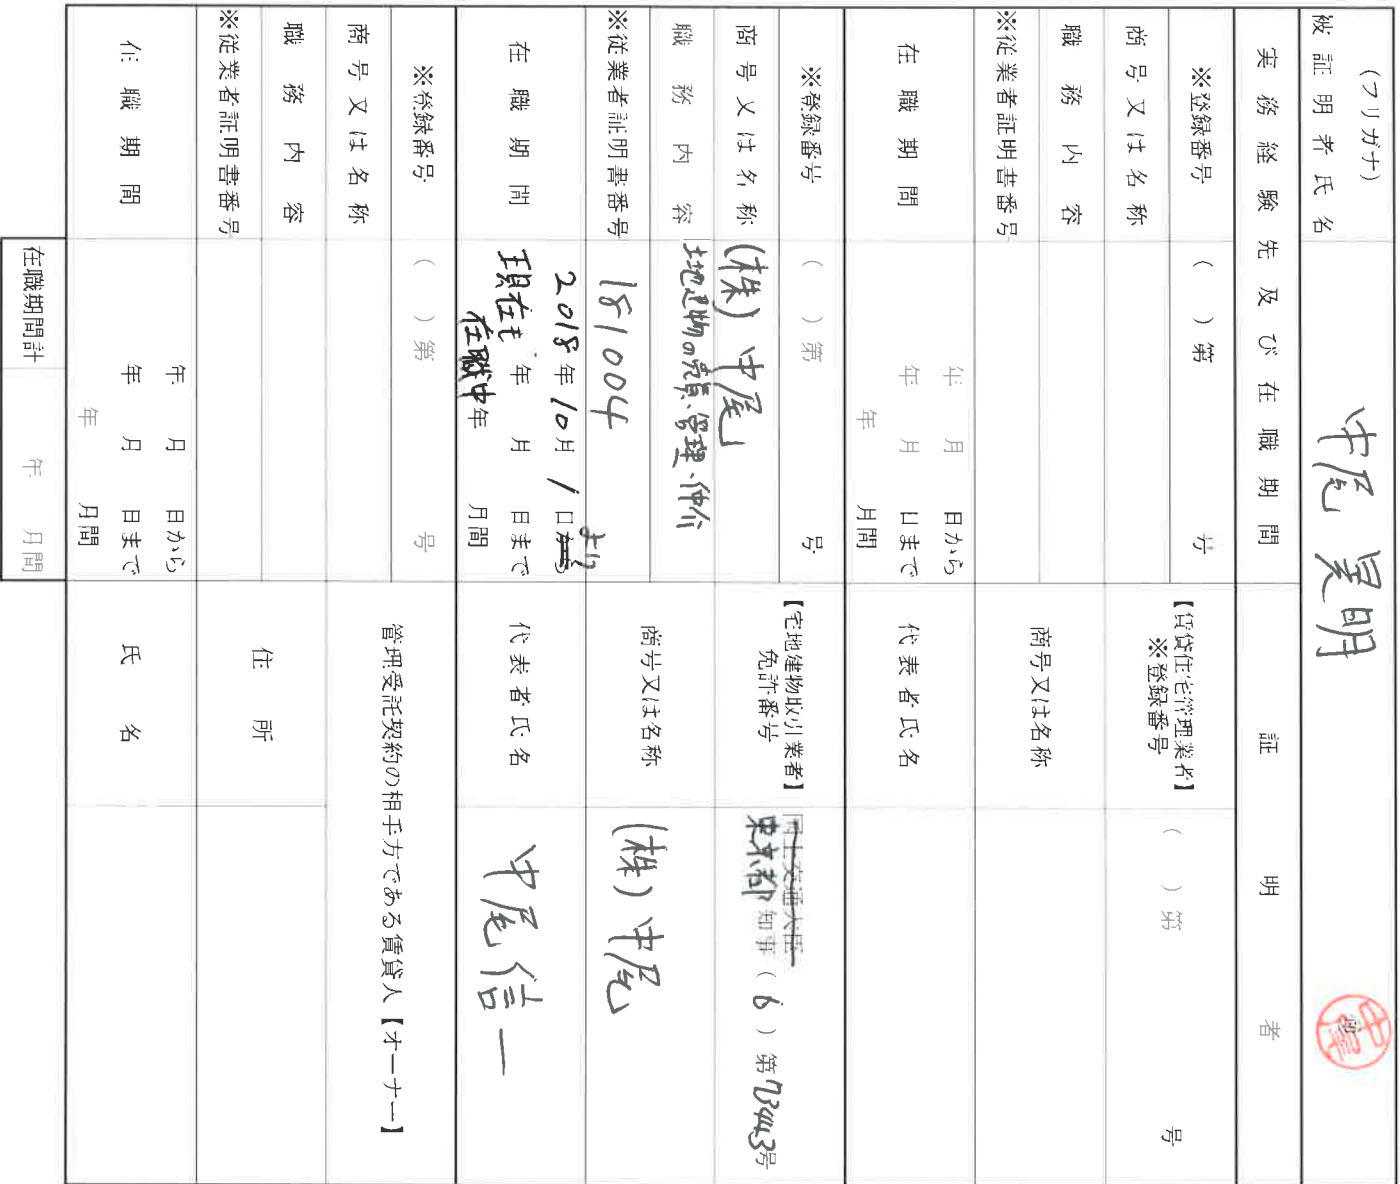 (フリガナ)
被証明者氏名 中尾 晃明
実務経験先及び在職期間 証明者
※登録番号 ( )第 号
商号又は名称
職務内容
※従業者証明書番号
在職期間 年 月 日から
年 月 日まで
年 月間
【賃貸住宅管理業者】
※登録番号 ( )第 号
商号又は名称
代表者氏名
※登録番号 ( )第 号
商号又は名称 (株)中尾
職務内容 土地建物の売買、管理、仲介
※従業者証明書番号 181004
在職期間 2018年10月1日から より
現在も 年 月 日まで
在職中 年 月間
【宅地建物取引業者】
免許番号 国土交通大臣
東京都 知事 (6)第73443号
商号又は名称 (株)中尾
代表者氏名 中尾信一
※登録番号 ( )第 号
商号又は名称
職務内容
※従業者証明書番号
在職期間 年 月 日から
年 月 日まで
年 月間
管理受託契約の相手方である賃貸人【オーナー】
住所
氏名
在職期間計 年 月間